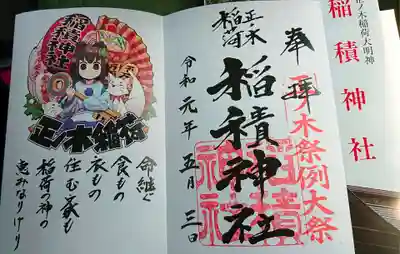 奉拝
正ノ木祭例大祭
正木
稲荷
稲積神社
令和元年五月三日
稲積神社
正ノ木稲荷
命継ぐ
食もの
衣もの
住む家も
稲荷の神の
恵みなりけり
正ノ木稲荷大明神
稲積神社